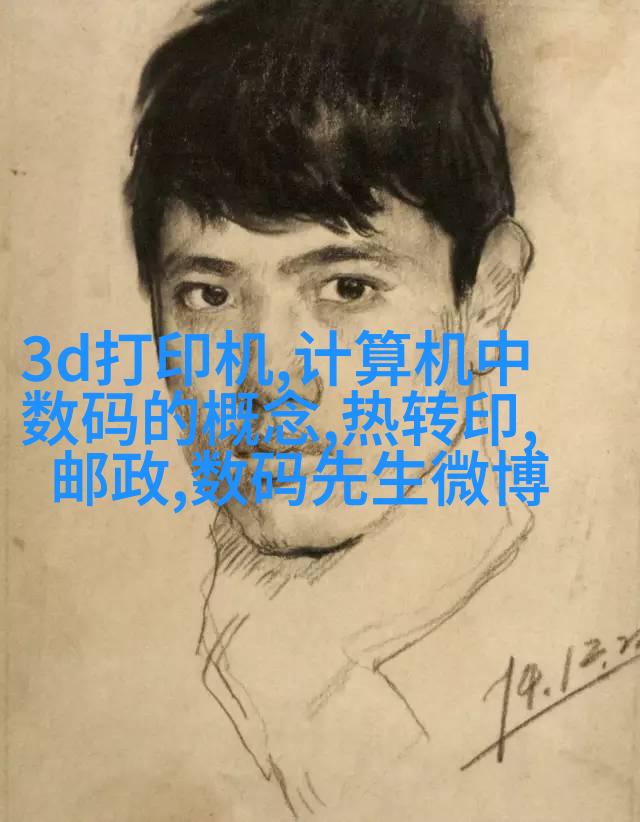 3d打印机,计算机中
数码的概念,热转印,
邮政,数码先生微博